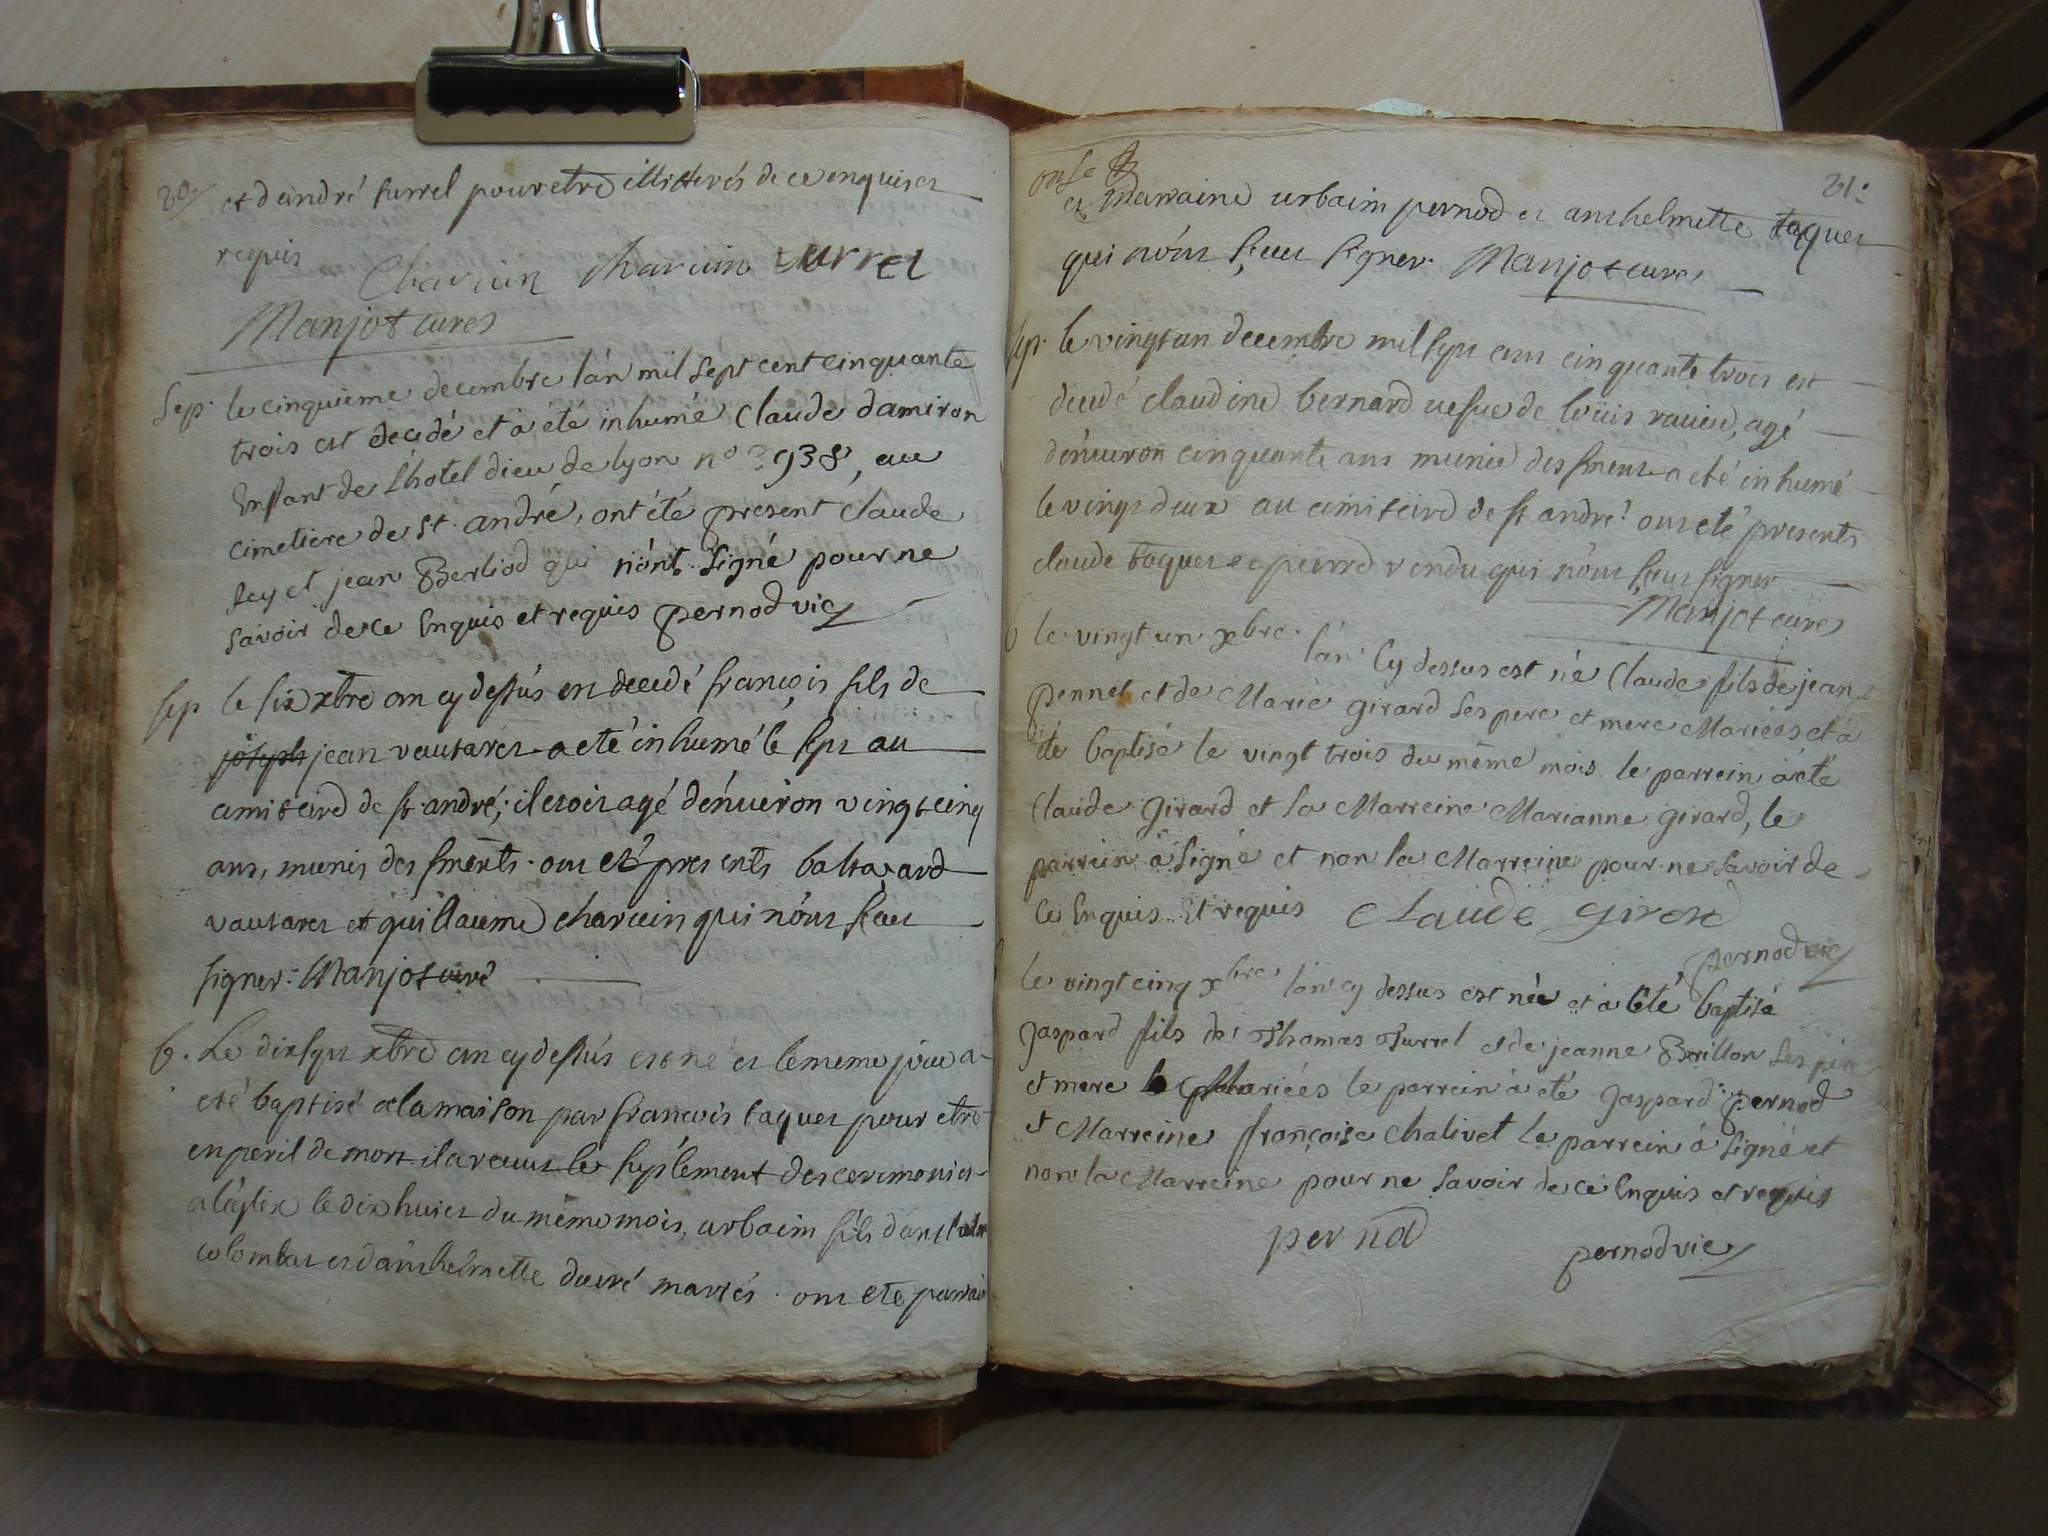 20
et d'andré surrel pour etre illitterés de ce enquis et
requis
Charuin Charuin surrel
Manjot curé
Sep. le cinquieme decembre l'an mil sept cent cinquante
trois est decedé et à été inhumé Claude damiron
Enffant de L'hotel dieu de lyon n° 3938, au
cimetiere de St. andré, ont été present Claude
Rey et jean Berliod qui n'ont signé pour ne
savoir de ce Enquis et requis pernod vic
sep le six xbre an cy dessus est decedé françois fils de
joseph jean vautaret a eté inhumé le sept au
cimitierd de st andré; il etoit agé d'enuiron vingt cinq
ans, munis des smens. ont eté presents baltazard
vautaret et guillaume charuin qui n'ont sceu
signer. Manjot curé
b. Le dix sept xbre an cy dessus est né et le meme jour a
eté baptisé a la maison par francois taquet pour etre
en peril de mort il a receut le suplement des ceremonies
a l'eglise le dix huict du même mois, urbaim fils d'
colombet et d'anthelmette ducré mariés. ont ete parrain
onse 21.
et marraine urbaim pernod et anthelmette taquet
qui n'ont sceu signer. Manjot curé
sep. le vingt un decembre mil sept cent cinquante trois est
decedé claudine bernard uefue de loüis rauied, agé
d'enuiron cinquante ans munie des smens a eté inhumé
le vingt deux au cimitierd de st andré. ont eté presents
claude taquet et pierre rendu qui n'ont sceu signer
Manjot curé
b le vingt un xbre l'an Cy dessus est né Claude fils de jean
pennet et de Marie girard ses pere et mere Mariées et à
été baptisé le vingt trois du même mois le parrein à été
Claude Girard et la Marreine Marianne girard, le
parrein à signé et non la Marreine pour ne savoir de
ce Enquis et requis CLaude girord
pernod vic
b le vingt cinq xbre l'an cy dessus est née et à été baptisé
gaspard fils de Thomas surrel et de jeanne Brillon ses pere
et mere mariées le parrein à été gaspard pernod
et Marreine françoise Chalivet le parrein à signé et
non la Marreine pour ne savoir de ce Enquis et requis
pernod pernod vic